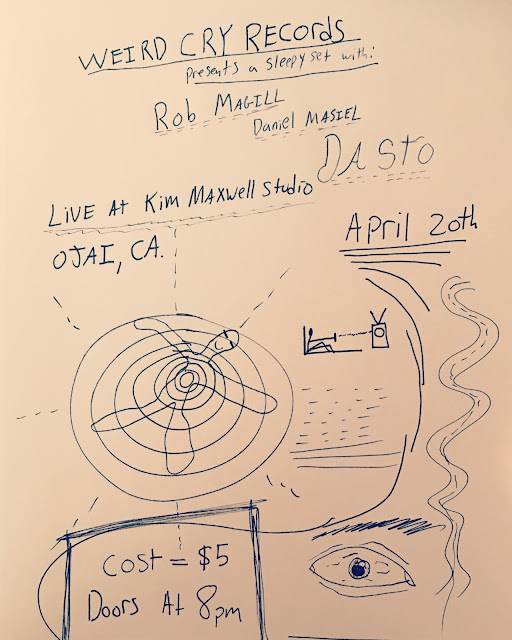 WEIRD CRY RECORDS
presents a sleepy set with:
Rob MAGILL
Daniel MASIEL
DA STO
LIVE At Kim MAXWELL Studio
OJAI, CA.
April 20th
COST = $5
Doors At 8pm